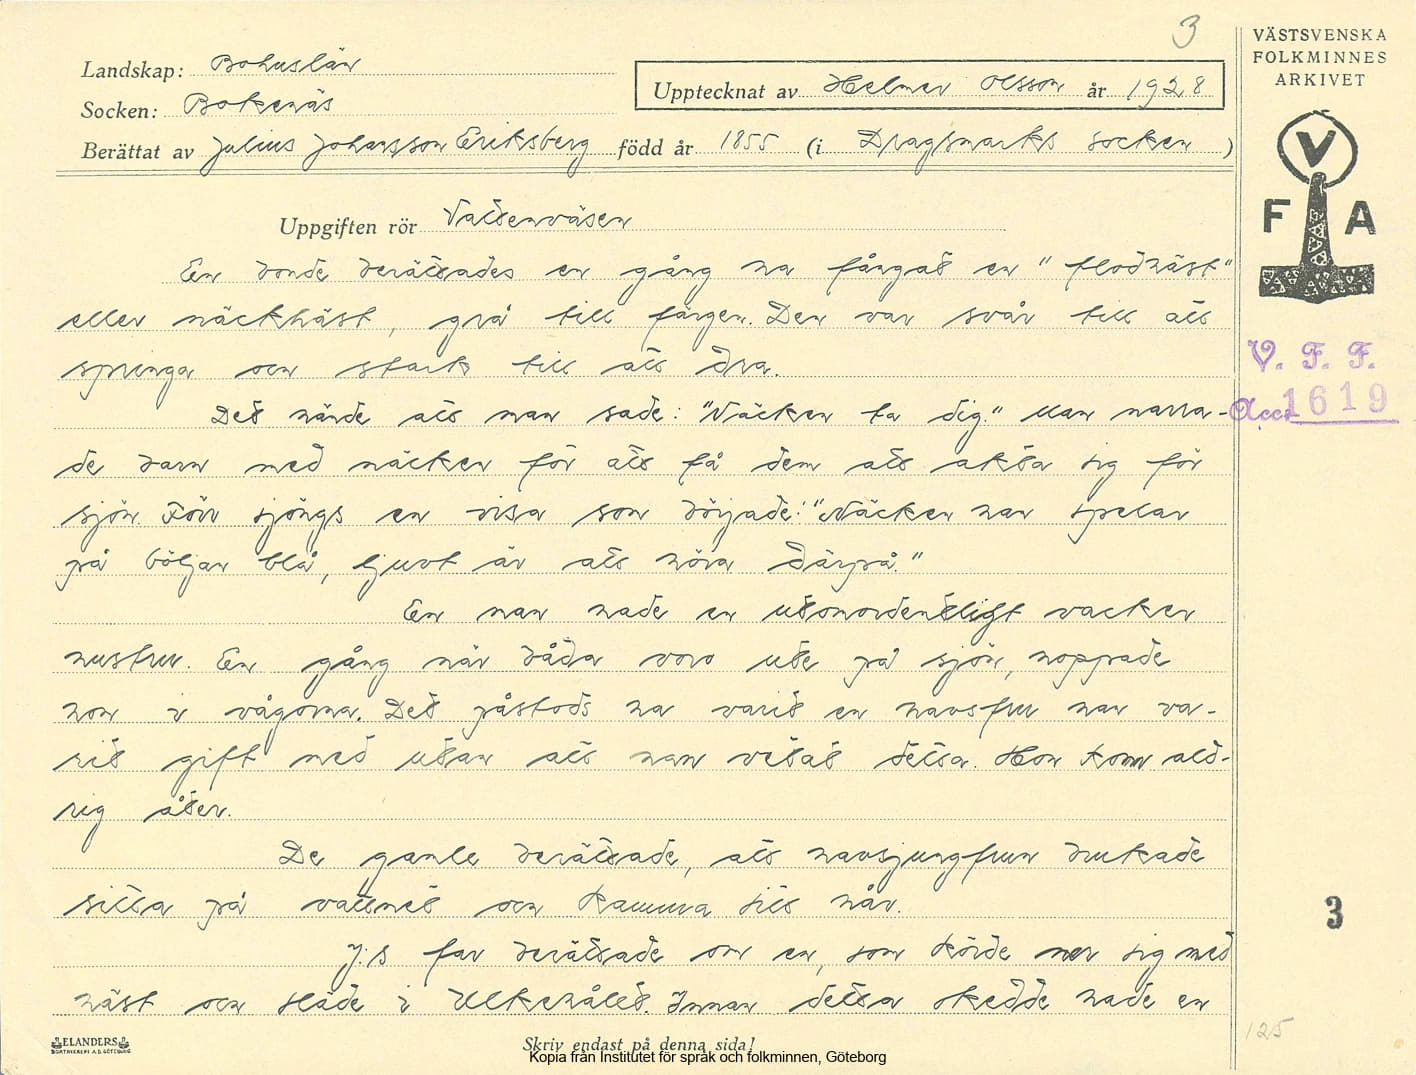 3
VÄSTSVENSKA
FOLKMINNES
ARKIVET
Landskap: Bohuslän
Upptecknat av Helmer Olsson år 1928
Socken: Bokenäs
Berättat av Julius Johansson Eriksberg född år 1855 (i Dragsmarks socken )
V
F A
Uppgiften rör Vattenväsen
En bonde berättades en gång ha fångat en "flodhäst"
eller näckhäst, grå till färgen. Den var svår till att
springa och stark till att dra.
V. F. F.
Acc. 1619
Det hände att man sade: "Näcken ta dig." Man narra-
de barn med näcken för att få dem att akta sig för
sjön. Förr sjöngs en visa som började: "Näcken han spelar
på böljan blå, ljuvt är att höra därpå."
En man hade en utomordentligt vacker
hustru. En gång när båda voro ute på sjön, hoppade
hon i vågorna. Det påstods ha varit en havsfru han va-
rit gift med utan att han vetat detta. Hon kom ald-
rig åter.
De gamle berättade, att havsjungfrun brukade
sitta på vattnet och kamma sitt hår.
3
J.s far berättade om en, som körde ner sig med
häst och släde i Ulkehålet. Innan detta skedde hade en
ELANDERS
BOKTRYCKERI A.B. GÖTEBORG
Skriv endast på denna sida!
125
Kopia från Institutet för språk och folkminnen, Göteborg